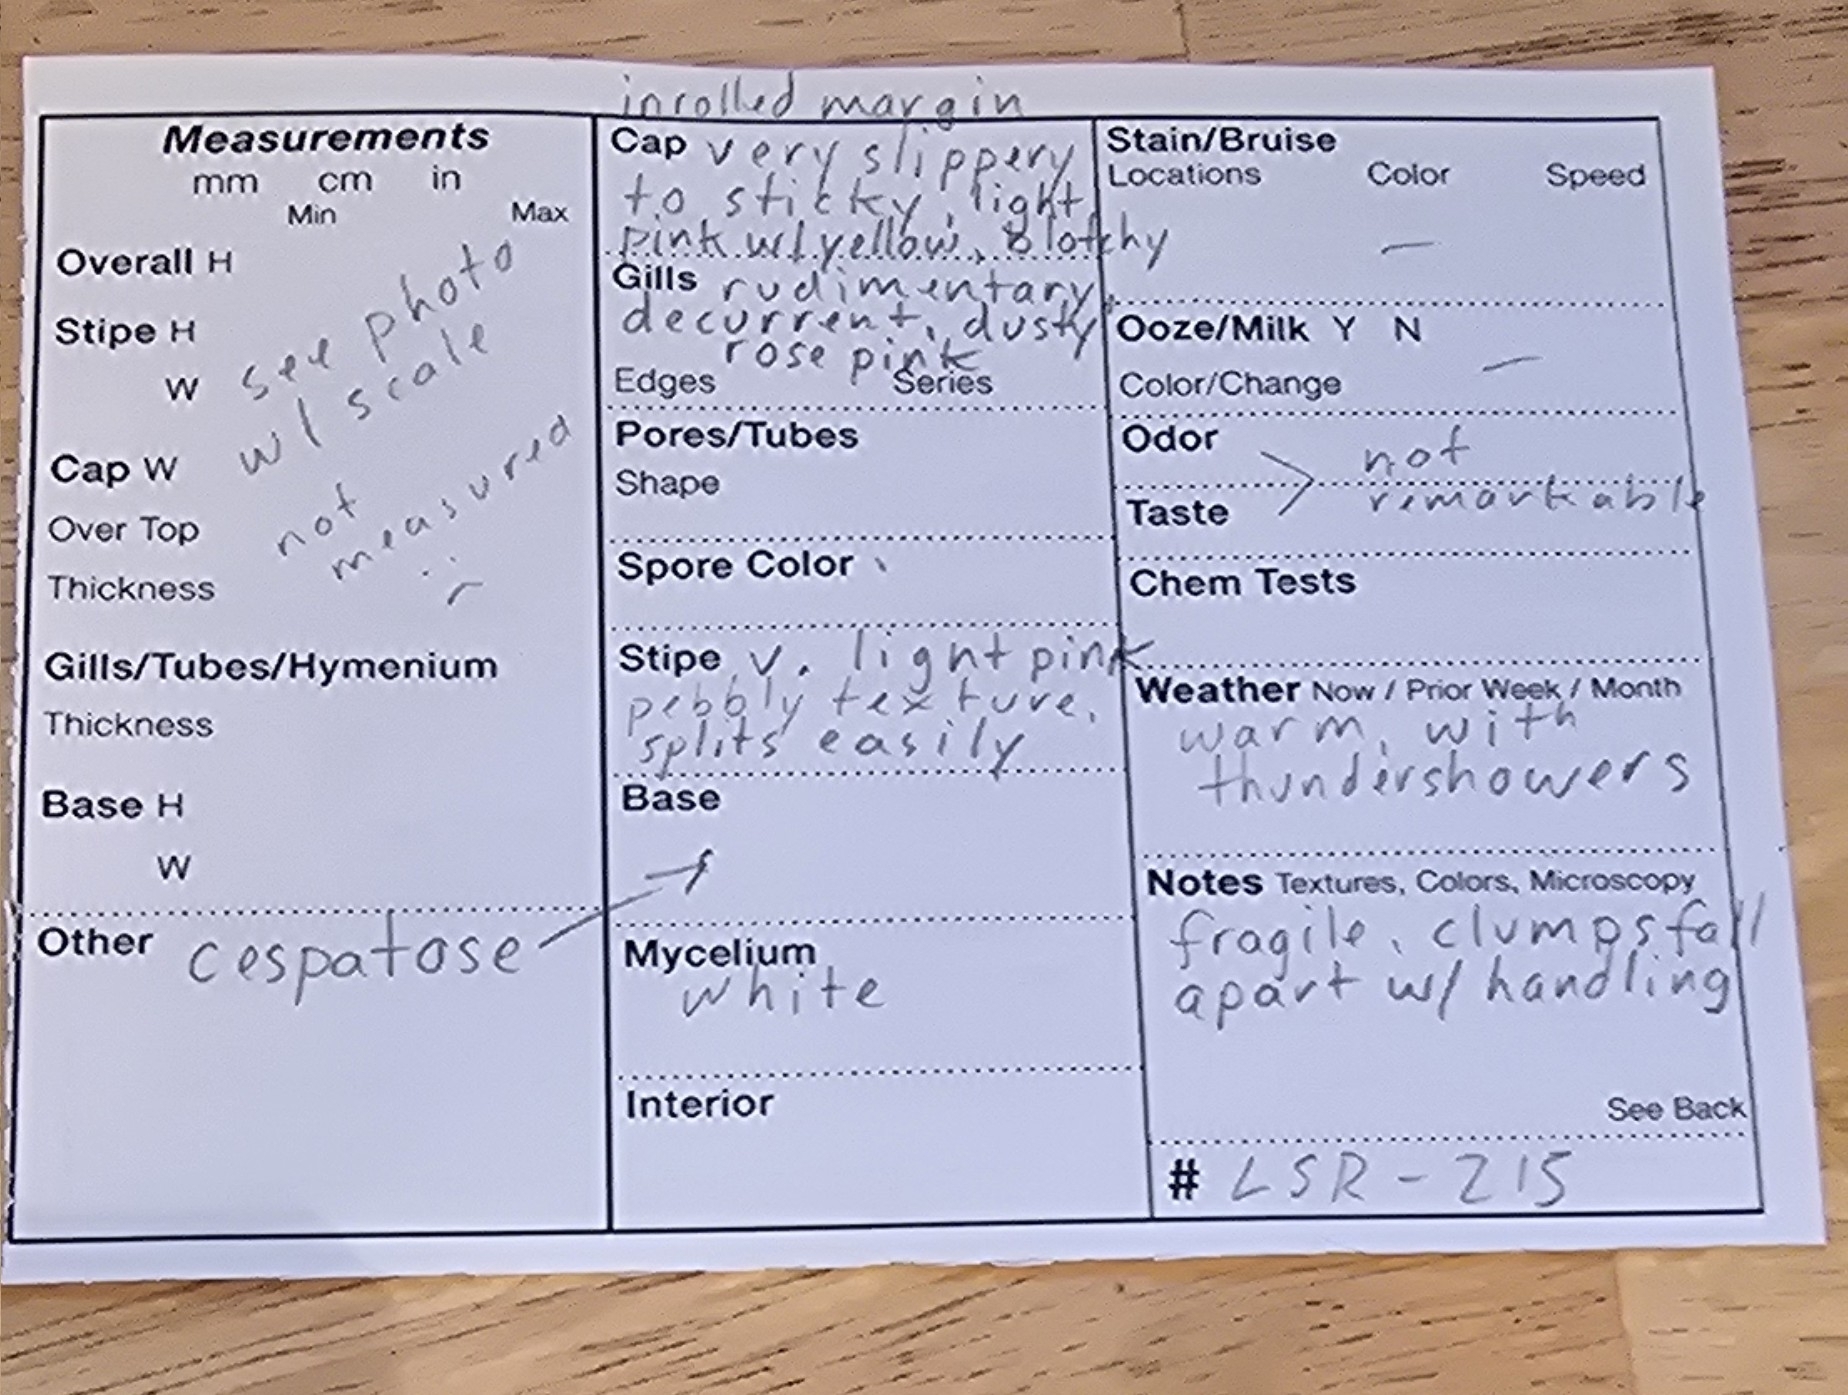 Measurements
mm cm in
Min Max
Overall H
Stipe H
W
see photo
w/ scale
Cap W
Over Top
not
measured
Thickness
Gills/Tubes/Hymenium
Thickness
Base H
W
Other cespatose
inrolled margin
Cap very slippery
to sticky, light
pink w/ yellow, blotchy
Gills rudimentary,
decurrent, dusty
rose pink
Edges Series
Pores/Tubes
Shape
Spore Color
Stipe v. light pink
pebbly texture,
splits easily
Base
Mycelium
white
Interior
Stain/Bruise
Locations Color Speed
—
Ooze/Milk Y N
—
Color/Change
Odor
not
remarkable
Taste
Chem Tests
Weather Now / Prior Week / Month
warm, with
thundershowers
Notes Textures, Colors, Microscopy
fragile, clumps fall
apart w/ handling
See Back
# LSR-215